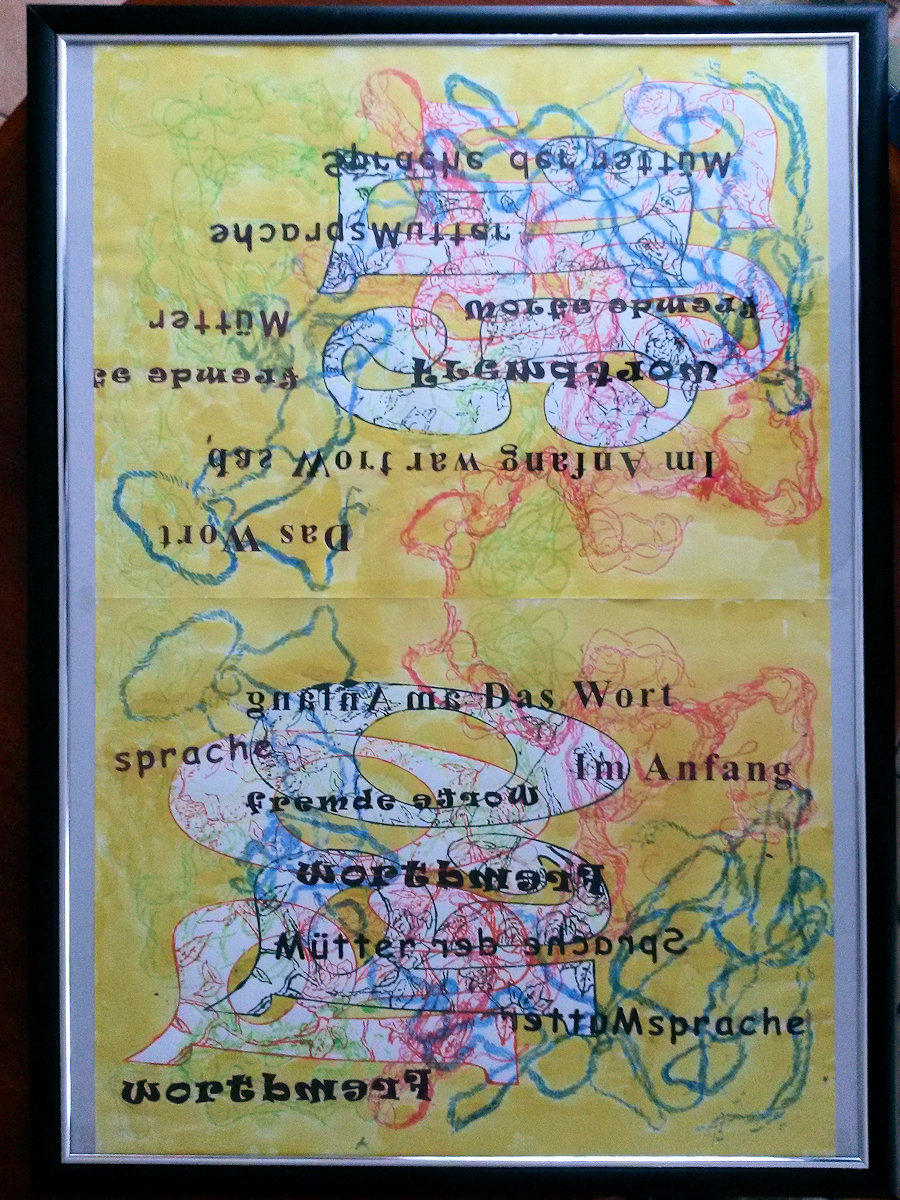 Mütter der Sprache
Muttersprache
fremde Worte
Mütter
fremde
Fremdwort
Im Anfang war das Wort,
Das Wort
am Anfang Das Wort
sprache
Im Anfang
fremde Worte
Fremdwort
Mütter der Sprache
Muttersprache
Fremdwort